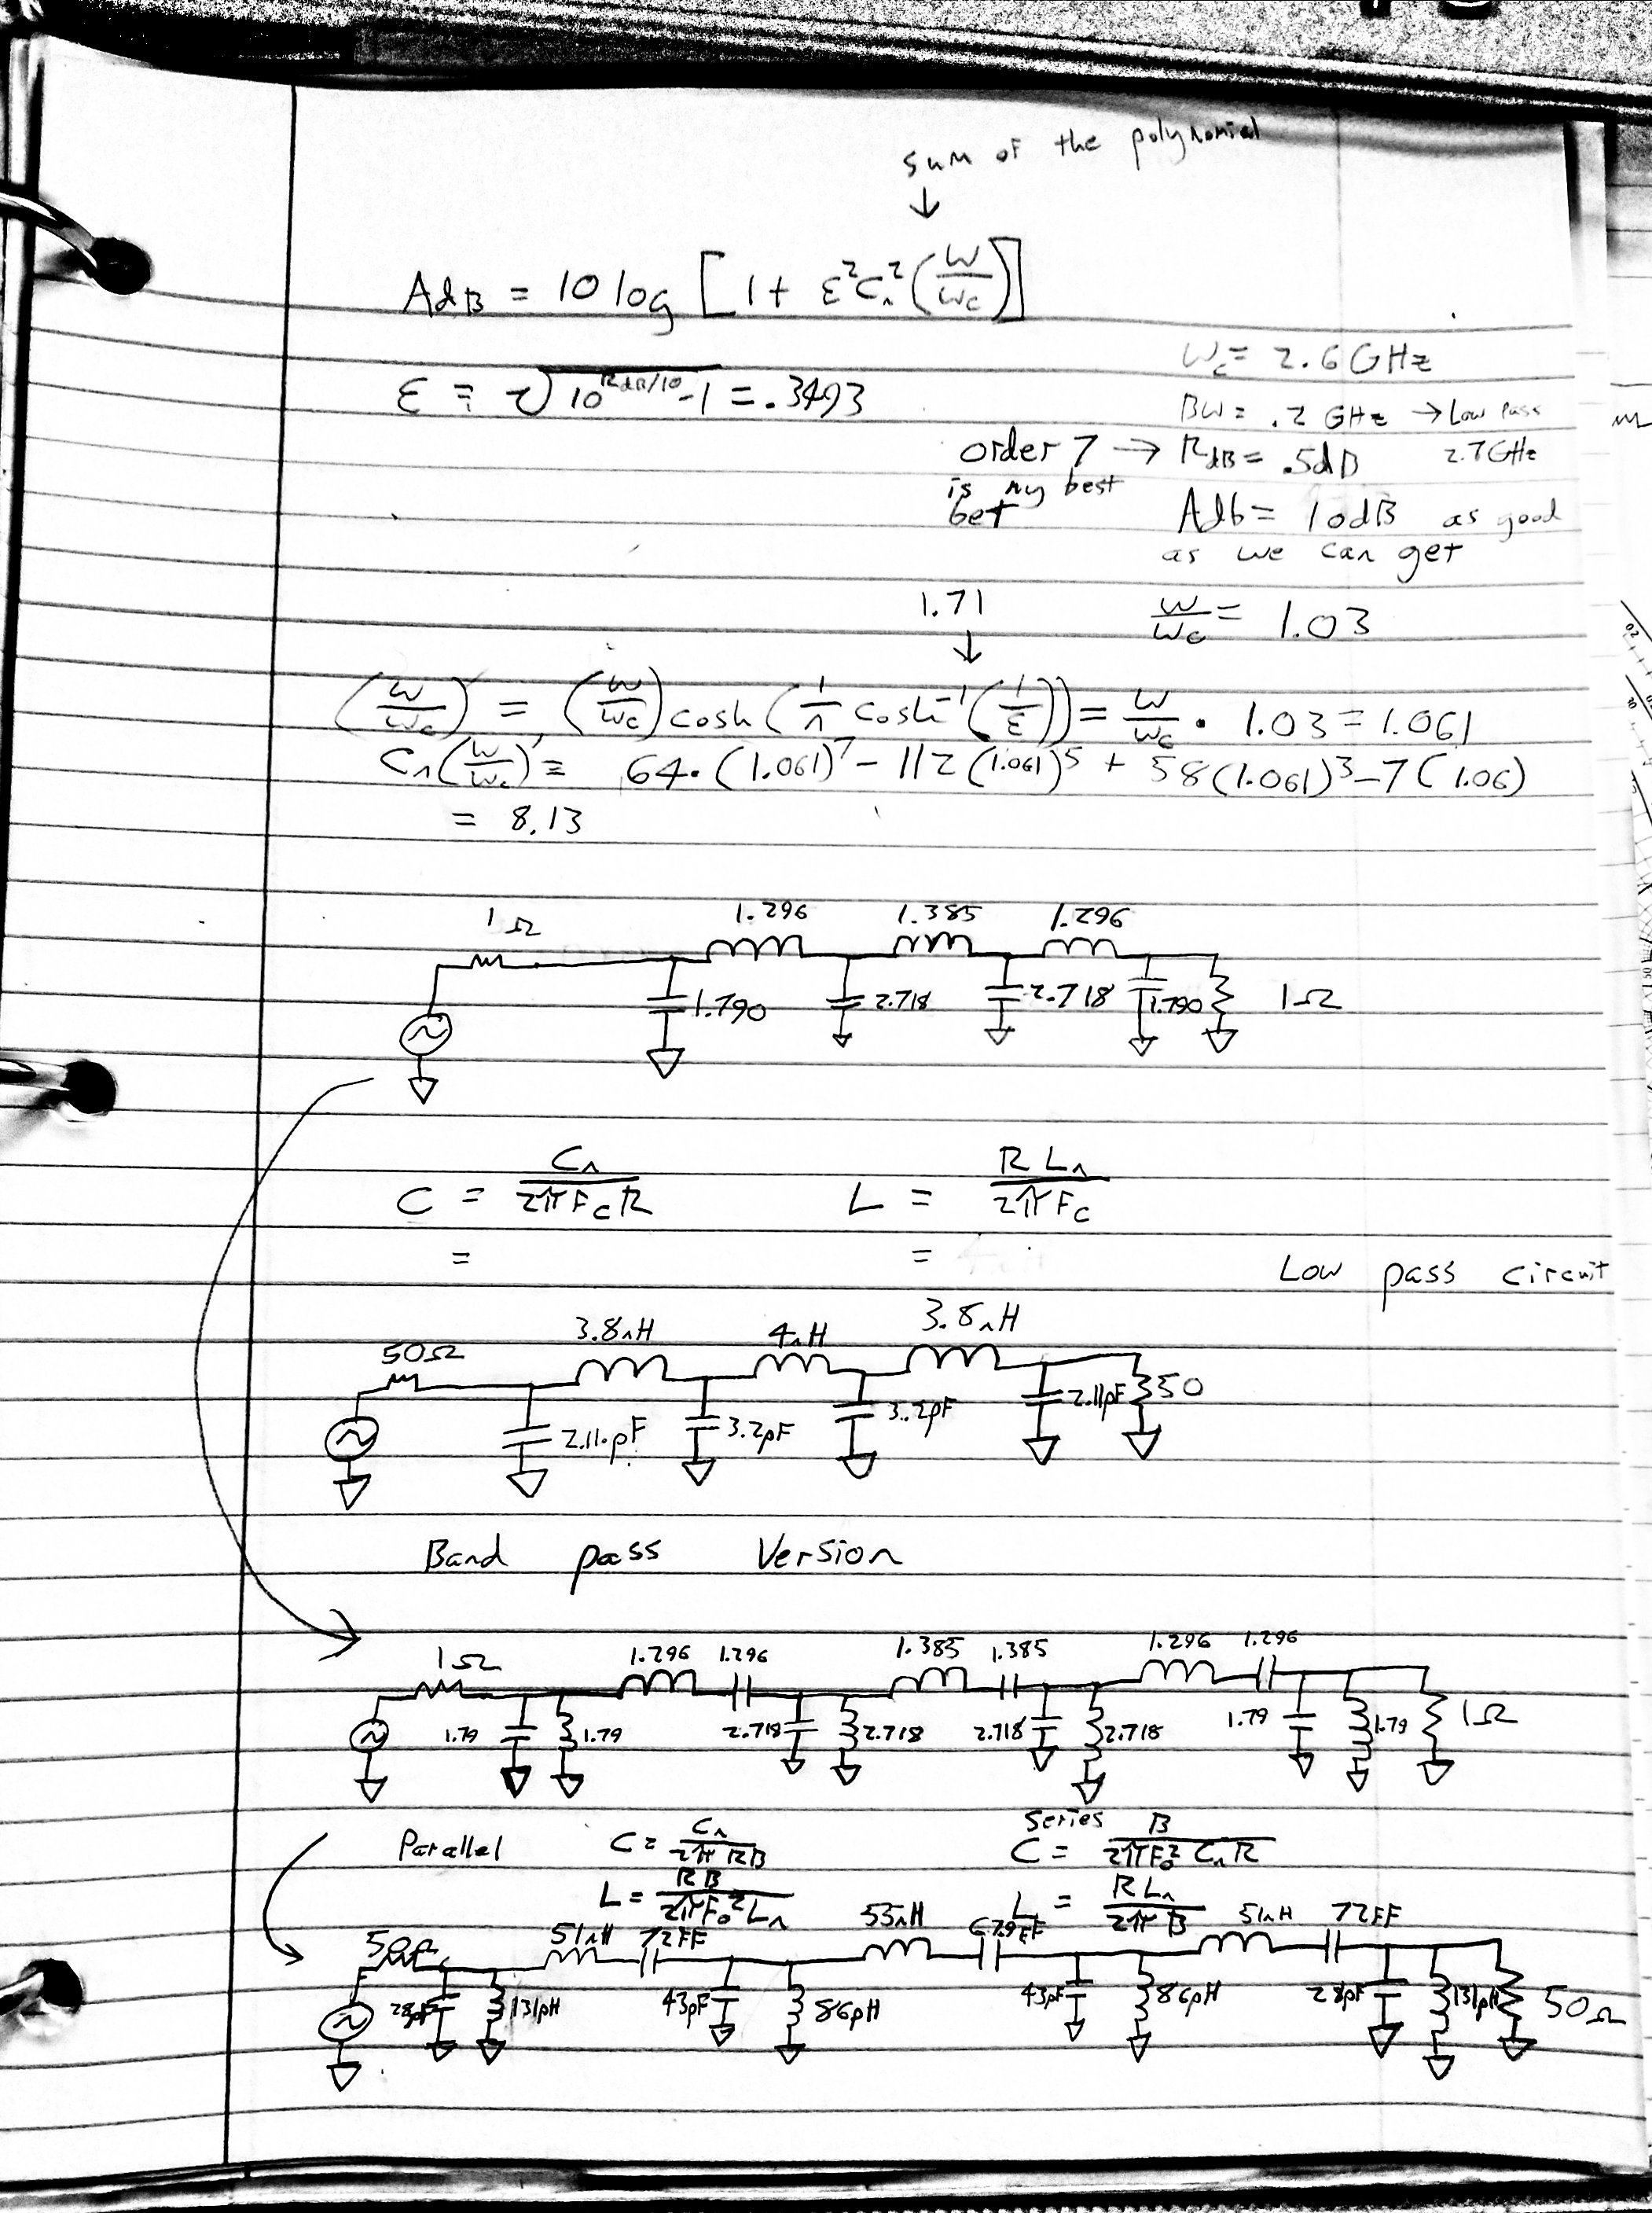 sum of the polynomial
↓
AdB = 10 log [ 1 + ε²Cₙ²(W/Wc) ]
Wc = 2.6 GHz
ε = 2√(10^(RdB/10) - 1) = .3493
BW = .2 GHz → Low Pass
2.7 GHz
order 7 → RdB = .5dB
is my best
bet
Adb = 10dB as good
as we can get
1.71
↓
W/Wc = 1.03
(W/Wc)' = (W/Wc) cosh(1/n cosh⁻¹(1/ε)) = W/Wc · 1.03 = 1.061
Cₙ(W/Wc)' = 64·(1.061)⁷ - 112(1.061)⁵ + 58(1.061)³ - 7(1.06)
= 8.13
1Ω 1.296 1.385 1.296
1.790 2.718 2.718 1.790 1Ω
C = Cₙ/(2πFcR) L = RLₙ/(2πFc)
= =
Low pass circuit
50Ω 3.8nH 4nH 3.8nH
2.11pF 3.2pF 3.2pF 2.11pF 50
Band pass Version
1Ω 1.296 1.296 1.385 1.385 1.296 1.296
1.79 1.79 2.718 2.718 2.718 2.718 1.79 1.79 1Ω
Parallel C = Cₙ/(2πRB) Series C = B/(2πF₀²CₙR)
L = RB/(2πF₀²Lₙ) L = RLₙ/(2πB)
50Ω 51nH 72FF 55nH 51nH 72FF
28pF 131pH 43pF 86pH 43pF 86pH 28pF 131pH 50Ω